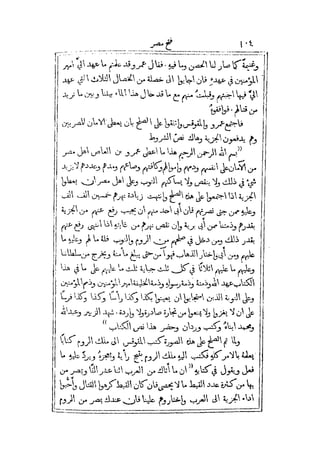 ١٠٤ فتح مصر
وغنيمة كما صار لنا الحصن وما فيه. فقال عمرو قد علمتم ما عهد اليّ امير
المؤمنين في عهده فان اجابوا الى خصلة من الخصال الثلاث التي عهد
اليّ فيها اجبتهم وقبلت منهم مع ما قد حال هذا الماء بيننا وبين ما نريد
من قتالهم. فوافقوه
فاجتمع عمرو والمقوقس واتفقوا على الصلح بان يعطى الامان للمصريين
وهم يدفعون الجزية وهاك نص الشروط
"بسم الله الرحمن الرحيم هذا ما اعطى عمرو بن العاص اهل مصر
من الامان على انفسهم ودمهم واموالهم وكافتهم وصاعهم ومدهم وعددهم لا يزيد
شيء في ذلك ولا ينقص ولا يساكنهم النوب وعلى اهل مصر ان يعطوا
الجزية اذا اجتمعوا على هذا الصلح وانتهت زيادة نهرهم خمسين الف الف
وعليه ممن جنى نصرتهم فان أبى احد منهم ان يجيب رفع عنهم من الجزية
بقدرهم وذمتنا ممن أبى برية وان نقص نهرهم من غايته اذا انتهى رفع عنهم
بقدر ذلك ومن دخل في صلحهم من الروم والنوب فله ما لهم وعليه ما
عليهم ومن أبى واختار الذهاب فهو آمن حتى يبلغ مأمنه ويخرج من سلطاننا
وعليهم ما عليهم اثلاثًا في كل ثلث جباية ثلث ما عليهم على ما في هذا
الكتاب عهد الله وذمته وذمة رسوله وذمة الخليفة امير المؤمنين وذمم المؤمنين
وعلى النوبة الذين استجابوا ان يعينوا بكذا وكذا رأسًا وكذا وكذا فرسًا
على ان لا يغزوا ولا يمنعوا من تجارة صادرة ولا واردة. شهد الزبير وعبد الله
ومحمد ابناه وكتب وردان وحضر هذا نص الكتاب"
ولما تم الصلح على هذه الصورة كتب المقوقس الى ملك الروم كتابًا
يعلمه بالامر كله فكتب اليه ملك الروم يقبح رأيه ويعجزه ويرد عليه ما
فعل ويقول في كتابه "ان ما أتاك من العرب اثنا عشر الفًا وبمصر من
بها من كثرة عدد القبط ما لا يحصى فان كان القبط كرهوا القتال وأحبوا
اداء الجزية الى العرب واختاروهم علينا فان عندك بمصر من الروم